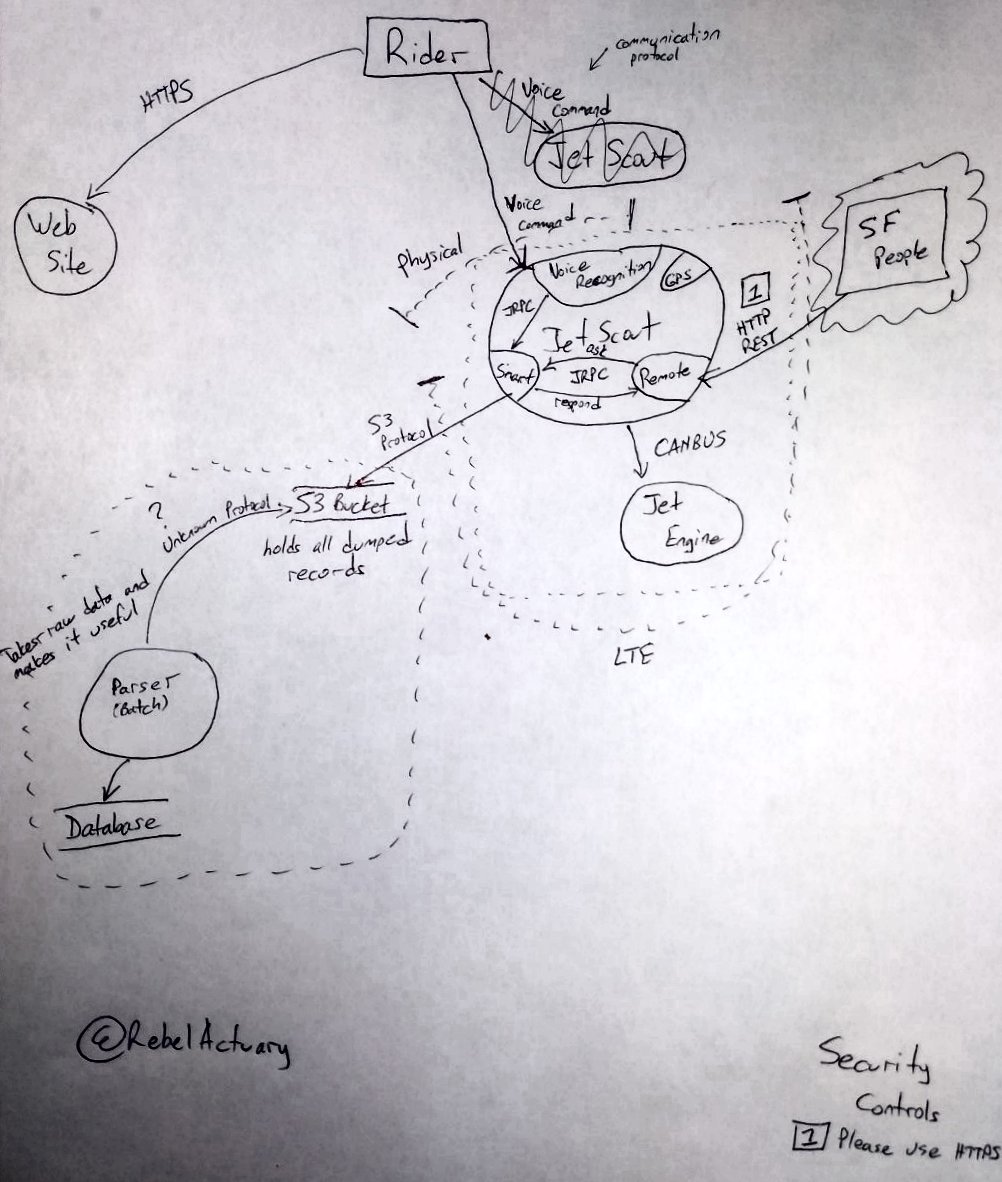 Rider
communication
protocol
HTTPS
Voice
Command
Jet Scout
Web
Site
Voice
Command
Physical
SF
People
Voice
Recognition
GPS
1
HTTP
REST
JRPC
Jet Scout
ask
Smart
JRPC
Remote
respond
S3
Protocol
CANBUS
?
Unknown Protocol
S3 Bucket
holds all dumped
records
Jet
Engine
Takes raw data and
makes it useful
LTE
Parser
(Batch)
Database
@RebelActuary
Security
Controls
1 Please use HTTPS